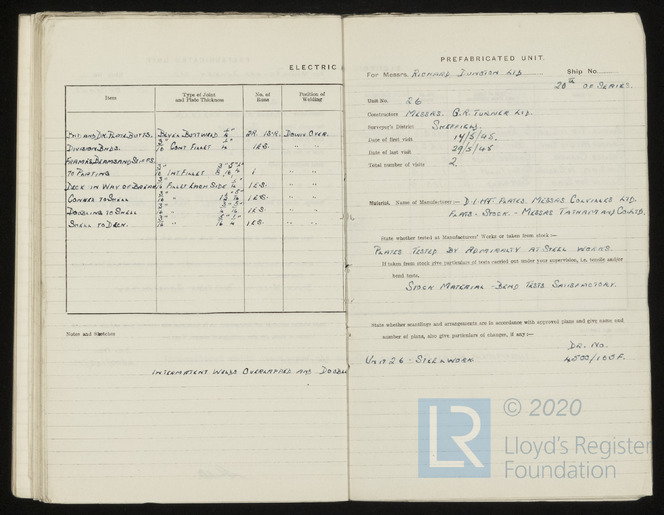 ELECTRIC
Item Type of Joint and Plate Thickness No. of Runs Position of Welding
BEVEL BUTTWELD 1/4" DOWN OVER.
DIVISION BHDS. 3/16" CONT FILLET 1/4" 1 E.S. " "
TO PLATING 3/16" INT FILLET 1 " "
DECK IN WAY OF FILLET EACH SIDE 1 E.S. " "
TO SHELL 1 E.S. " "
DOUBLING TO SHELL 1 E.S. " "
SHELL TO DECK. 1 E.S. " "
Notes and Sketches
INTERMITTENT WELDS OVERLAPPED AND DOUBL
PREFABRICATED UNIT.
For Messrs. RICHARD DUNSTON LTD Ship No.
20TH OF SERIES.
Unit No. 26
Constructors MESSRS. G.R. TURNER LTD.
Surveyor's District SHEFFIELD.
Date of first visit 14/5/45.
Date of last visit 29/5/45
Total number of visits 2.
Material. Name of Manufacturer:— PLATES. MESSRS COLVILLES LTD.
FLATS - STOCK. - MESSRS CO. LTD.
State whether tested at Manufacturers' Works or taken from stock:—
PLATES TESTED BY ADMIRALTY AT STEEL WORKS.
If taken from stock give particulars of tests carried out under your supervision, i.e. tensile and/or
bend tests.
STOCK MATERIAL - BEND TESTS SATISFACTORY.
State whether scantlings and arrangements are in accordance with approved plans and give name and
number of plans, also give particulars of changes, if any:—
DR. NO.
UNIT 26 - STEELWORK 4500/105F.
LR
© 2020
Lloyd's Register
Foundation